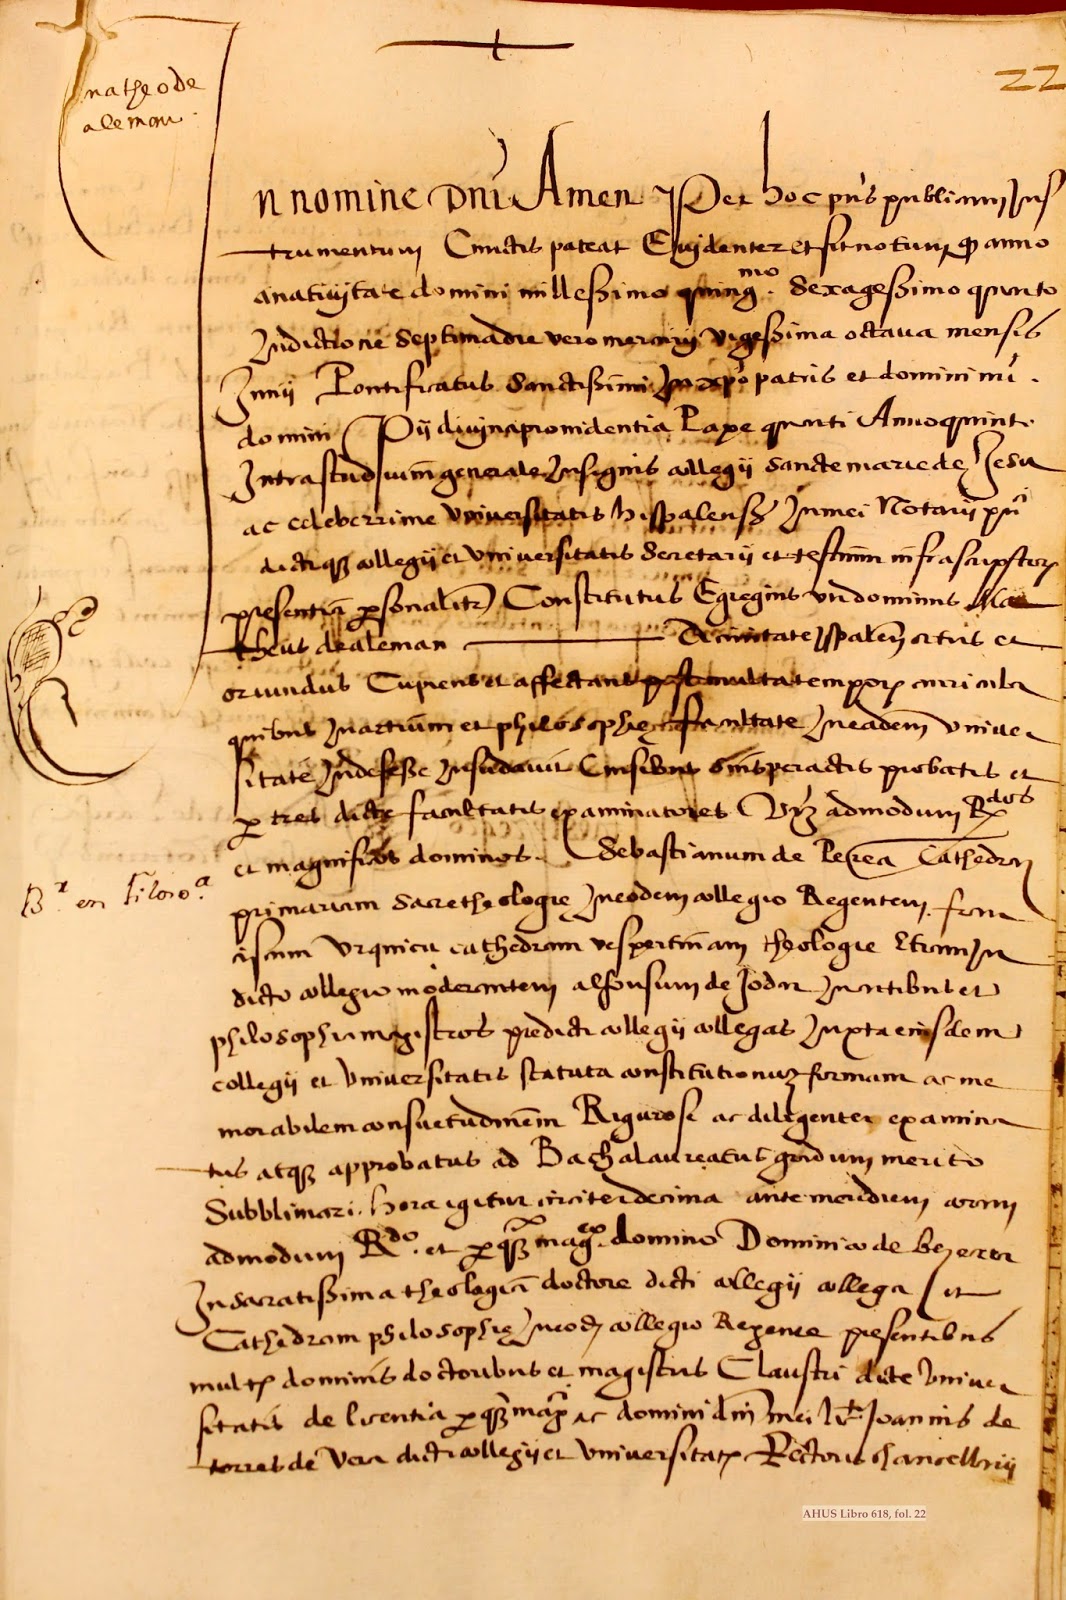 22
matheo de
aleman
In nomine Dni Amen Per hoc pns publicum Ins
trumentum Cunctis pateat Evidenter et sit notum q anno
a nativitate domini millessimo quing.mo sexagessimo quarto
Indictione septima die vero mercurij vigessima octava mensis
Junij Pontificatus Sanctissimi in xpo patris et domini nri.
domini Pij divina providentia Pape quarti Anno quinto
Intra studium generale insignis collegij sancte marie de Jesu
ac celeberrime universitatis hispalensis In mei Notarij pu
dictiq collegij et universitatis secretarij et testium infrascriptor
presentia personaliter Constitutus Egregius vir dominus Ma
theus de aleman Civitate ispalen ortus et
oriundus Cupiens et affectans post multa tempor curricula
quibus in artium et philosophie facultate In eadem univer
sitate Indefesse insudavit Cursibus suis peractis probatis et
per tres dicte facultatis examinatores Vz admodum Rdos
et magnificos dominos. Sebastianum de Perea Cathedram
primariam sacre theologie In eodem collegio Regentem. fran
Br. en Filoso.a
ciscum Urquicu cathedram vespertinam theologie Etiam In
dicto collegio moderantem alfonsum de Jodar In artibus et
philosophia magistros predicti collegij collegas Juxta eiusdem
collegij et Universitatis statuta constitutionum formam ac me
morabilem consuetudinem Rigurose ac diligenter examina
tus atq approbatus ad Bachalaureatus gradum merito
Subblimari. hora igitur circiter decima ante meridiem coram
admodum Rdo. et perq mag.co domino Dominico de bezerra
In sacratissima theologia doctore dicti collegij collega et
Cathedram philosophie In eod collegio Regente presentibus
mult dominis doctoribus et magistris Claustri dicte Univer
sitatis de licentia perq mag ac domini dni mei lit. Joannis de
torres de Vera dicti collegij et universitat Rectoris chancellarij
AHUS Libro 618, fol. 22